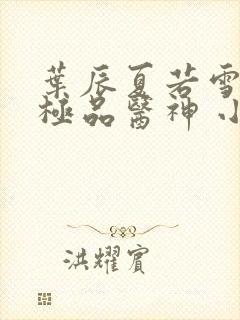 葉辰夏若雪
極品醫神 小
洪耀賓